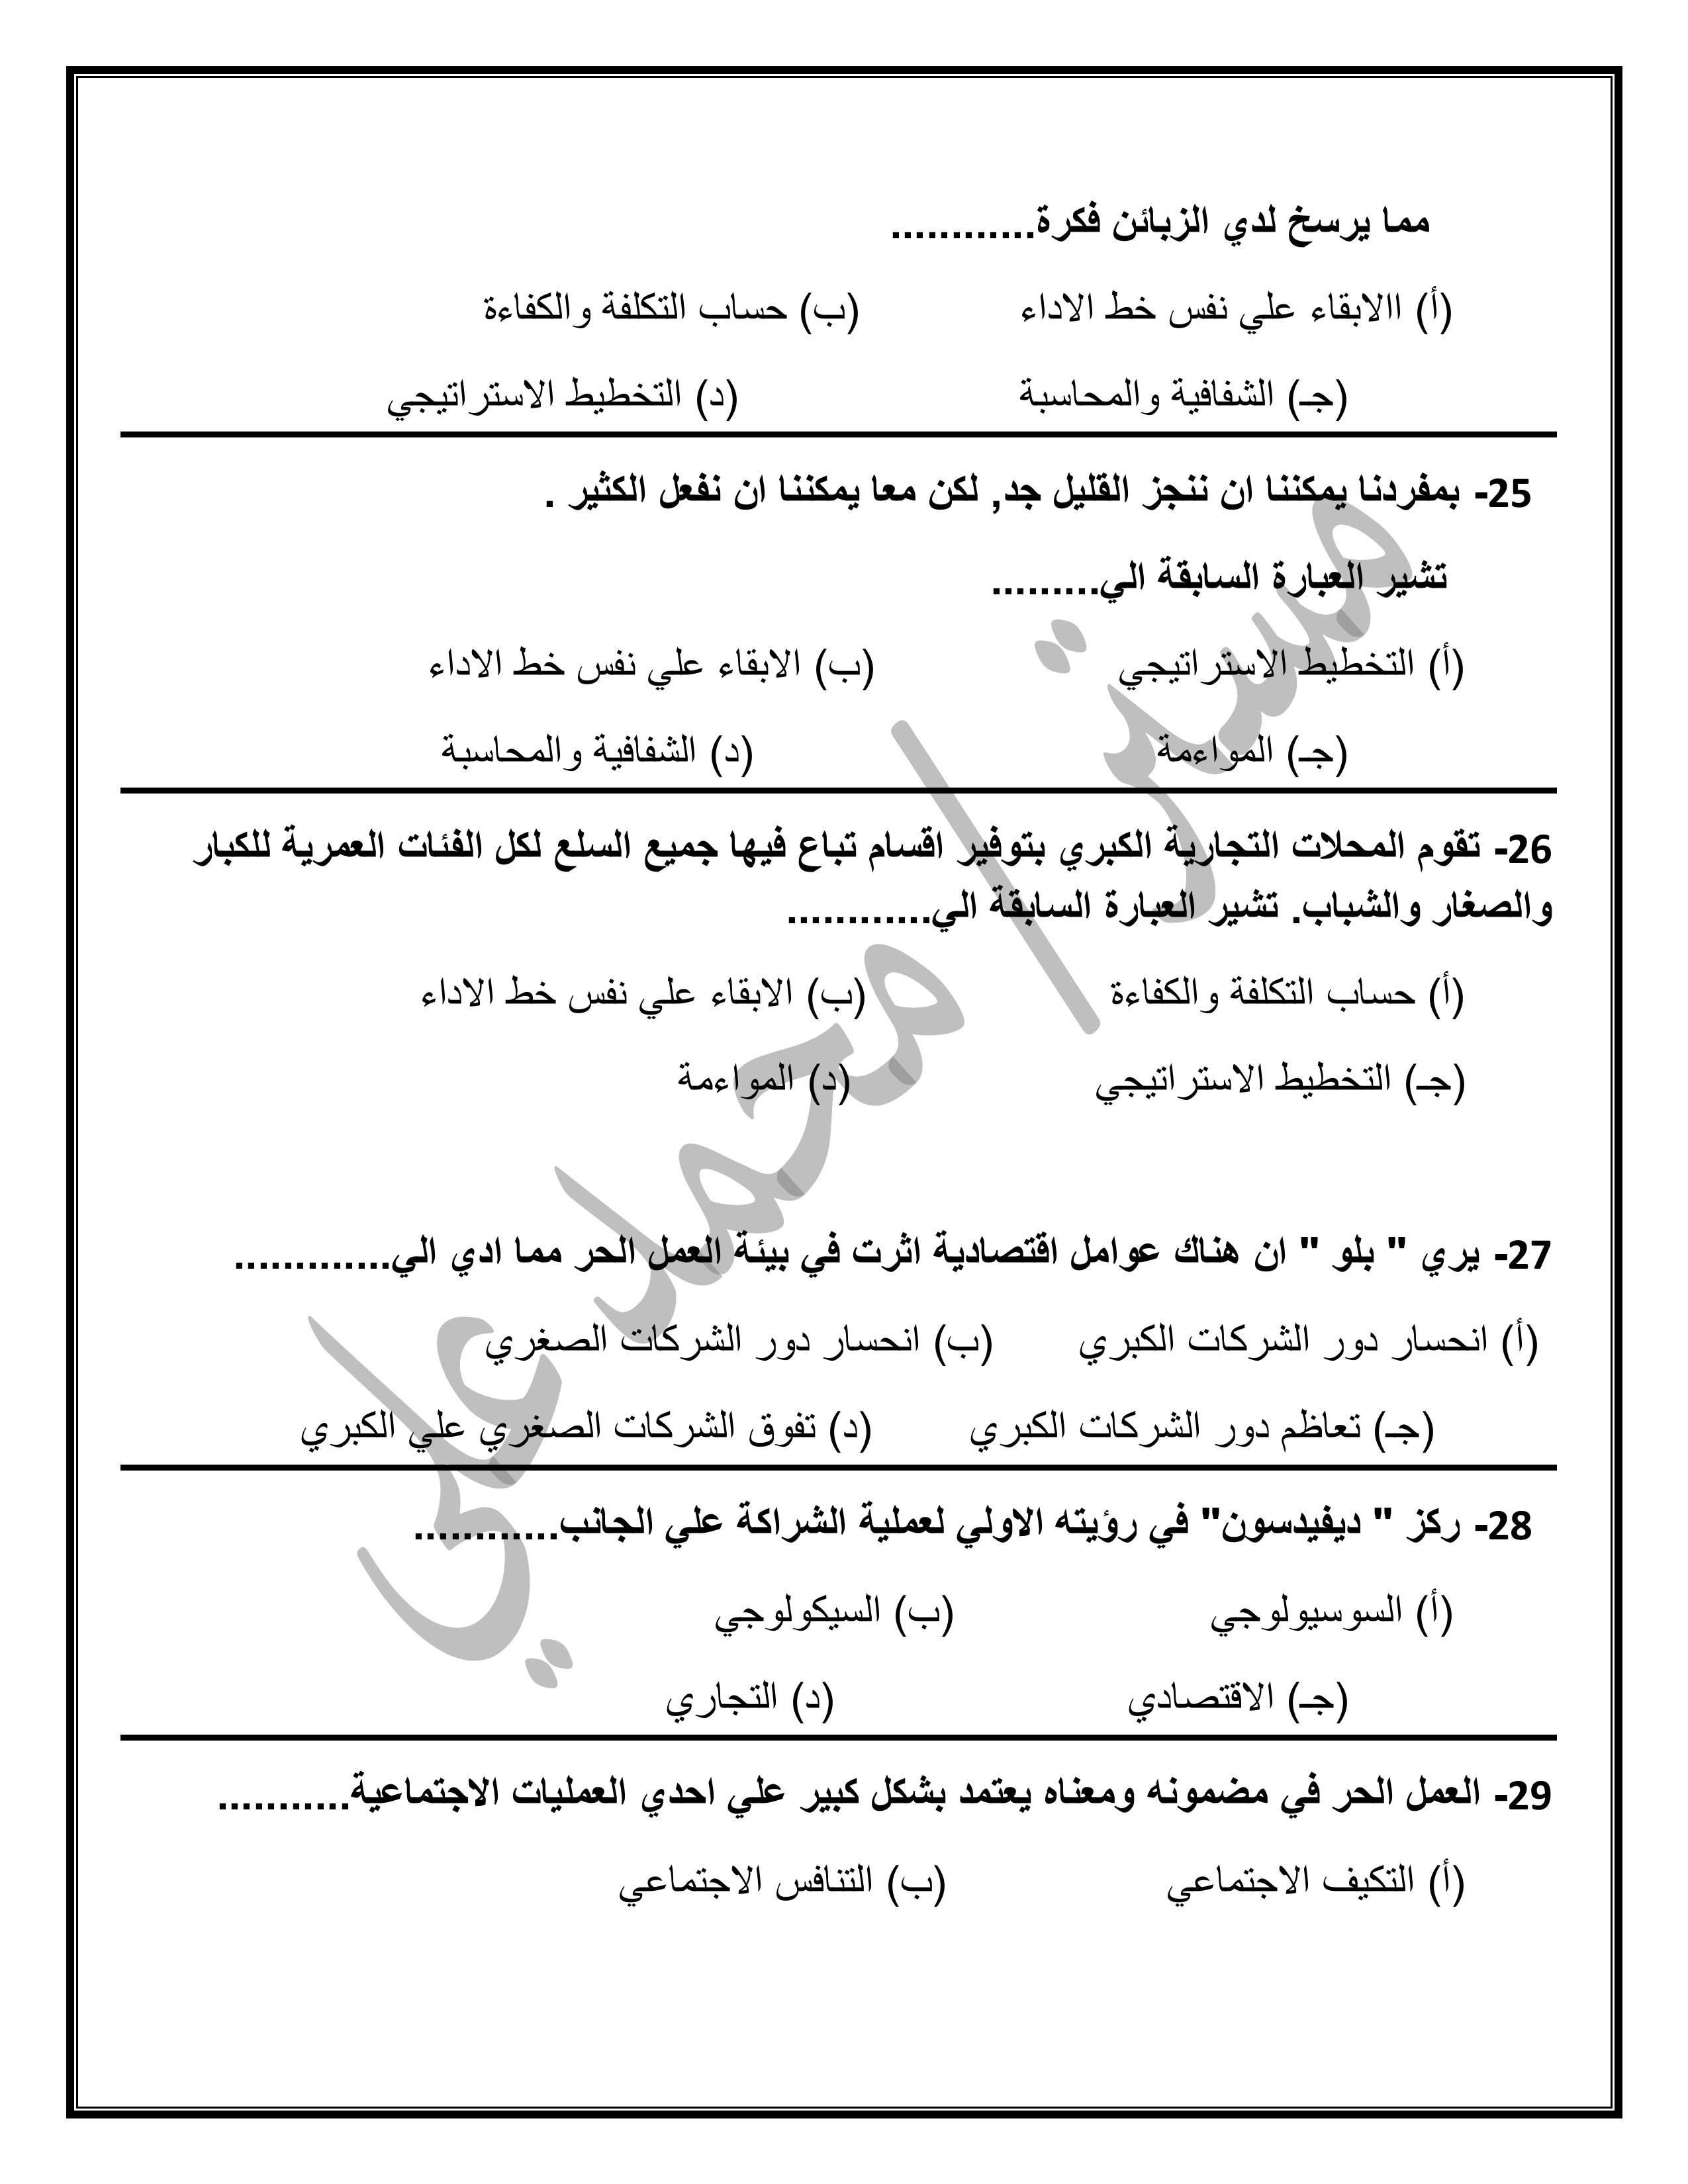 مما يرسخ لدي الزبائن فكرة............
(أ) االابقاء علي نفس خط الاداء (ب) حساب التكلفة والكفاءة
(جـ) الشفافية والمحاسبة (د) التخطيط الاستراتيجي
25- بمفردنا يمكننا ان ننجز القليل جد, لكن معا يمكننا ان نفعل الكثير .
تشير العبارة السابقة الي.........
(أ) التخطيط الاستراتيجي (ب) الابقاء علي نفس خط الاداء
(جـ) المواءمة (د) الشفافية والمحاسبة
26- تقوم المحلات التجارية الكبري بتوفير اقسام تباع فيها جميع السلع لكل الفئات العمرية للكبار
والصغار والشباب. تشير العبارة السابقة الي............
(أ) حساب التكلفة والكفاءة (ب) الابقاء علي نفس خط الاداء
(جـ) التخطيط الاستراتيجي (د) المواءمة
27- يري " بلو " ان هناك عوامل اقتصادية اثرت في بيئة العمل الحر مما ادي الي.............
(أ) انحسار دور الشركات الكبري (ب) انحسار دور الشركات الصغري
(جـ) تعاظم دور الشركات الكبري (د) تفوق الشركات الصغري علي الكبري
28- ركز " ديفيدسون" في رؤيته الاولي لعملية الشراكة علي الجانب............
(أ) السوسيولوجي (ب) السيكولوجي
(جـ) الاقتصادي (د) التجاري
29- العمل الحر في مضمونه ومعناه يعتمد بشكل كبير علي احدي العمليات الاجتماعية...........
(أ) التكيف الاجتماعي (ب) التنافس الاجتماعي
مستر/محمد علي